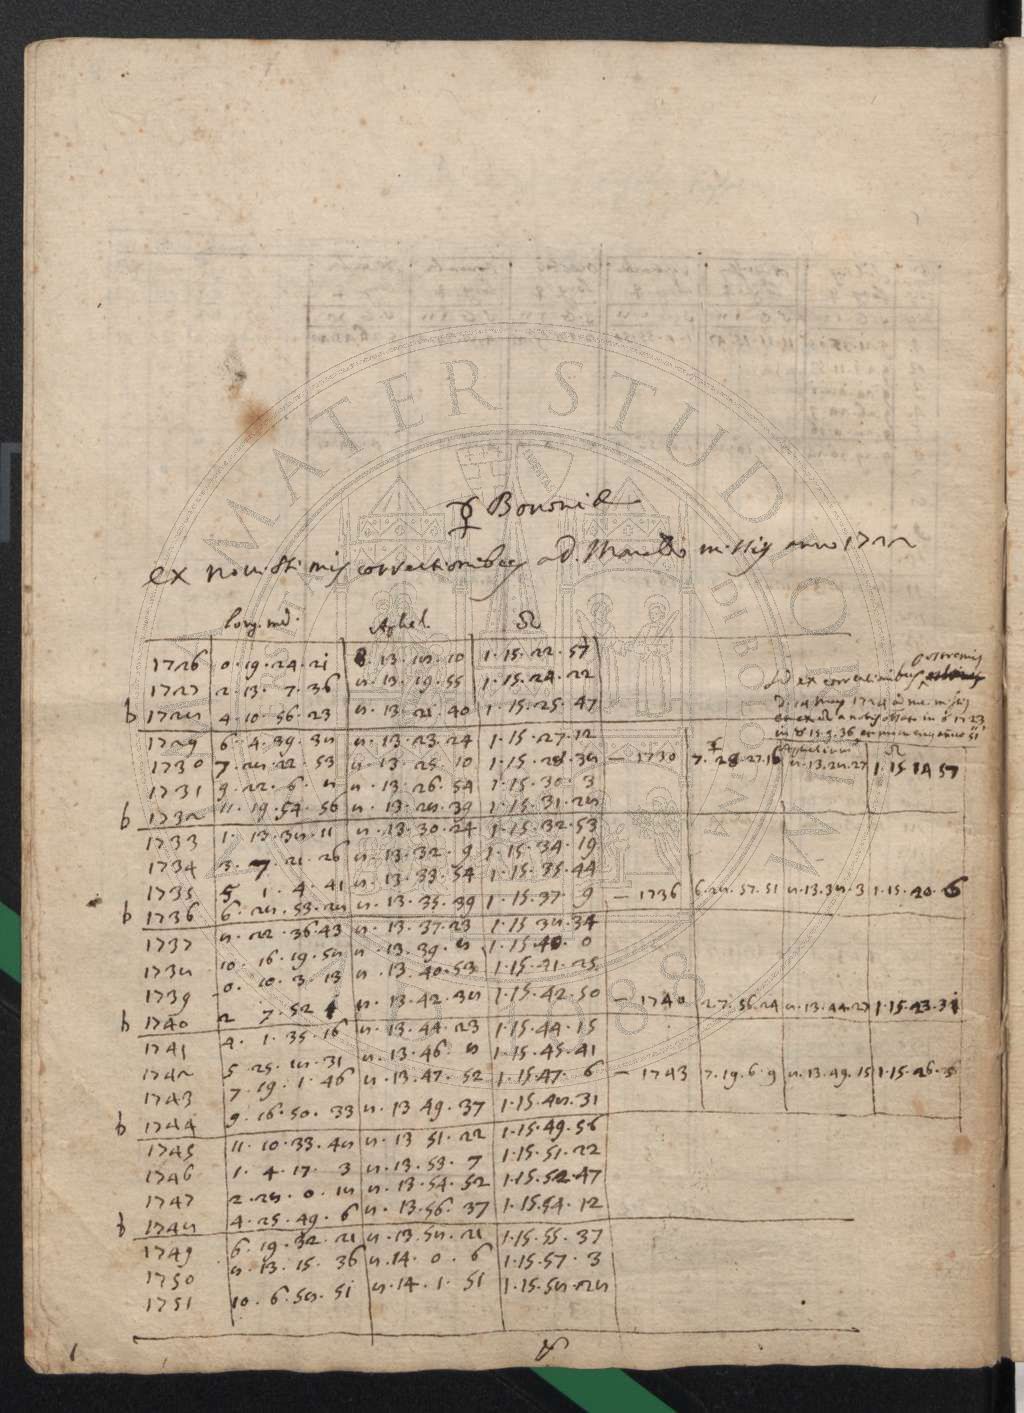 ☿ Bononiæ
ex novissimis correctionibus ad Manfredio missis anno 1722
long. med. Aphel. ☊
1726 0.19.24.21 8.13.18.10 1.15.22.57
1727 2.13.7.36 8.13.19.55 1.15.24.22
b 1728 4.10.56.23 8.13.21.40 1.15.25.47
1729 6.4.39.38 8.13.23.24 1.15.27.12
1730 7.28.22.53 8.13.25.10 1.15.28.38
1731 9.22.6.8 8.13.26.54 1.15.30.3
b 1732 11.19.54.56 8.13.28.39 1.15.31.28
1733 1.13.38.11 8.13.30.24 1.15.32.53
1734 3.7.21.26 8.13.32.9 1.15.34.19
1735 5.1.4.41 8.13.33.54 1.15.35.44
b 1736 6.28.53.28 8.13.35.39 1.15.37.9
1737 8.22.36.43 8.13.37.23 1.15.38.34
1738 10.16.19.58 8.13.39.8 1.15.40.0
1739 0.10.3.13 8.13.40.53 1.15.41.25
b 1740 2.7.52.1 8.13.42.38 1.15.42.50
1741 4.1.35.16 8.13.44.23 1.15.44.15
1742 5.25.18.31 8.13.46.8 1.15.45.41
1743 7.19.1.46 8.13.47.52 1.15.47.6
b 1744 9.16.50.33 8.13.49.37 1.15.48.31
1745 11.10.33.48 8.13.51.22 1.15.49.56
1746 1.4.17.3 8.13.53.7 1.15.51.22
1747 2.28.0.18 8.13.54.52 1.15.52.47
b 1748 4.25.49.6 8.13.56.37 1.15.54.12
1749 6.19.32.21 8.13.58.21 1.15.55.37
1750 8.13.15.36 8.14.0.6 1.15.57.3
1751 10.6.58.51 8.14.1.51 1.15.58.28
postremis
Sed ex correctionibus
d. 14 May 1724 a me missis
Aphelium ☊
– 1730 7.28.27.16 8.13.28.27 1.15.14.57
– 1736 6.28.57.51 8.13.38.3 1.15.20.6
– 1740 2.7.56.24 8.13.44.27 1.15.23.31
– 1743 7.19.6.9 8.13.49.15 1.15.26.5
ALMA MATER STUDIORUM
1